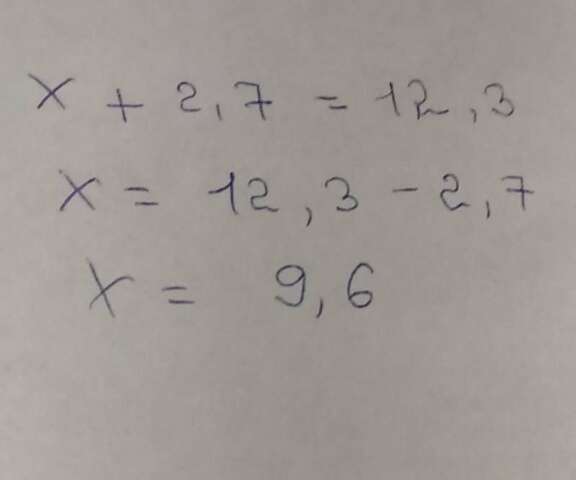 x + 2,7 = 12,3
x = 12,3 - 2,7
x = 9,6